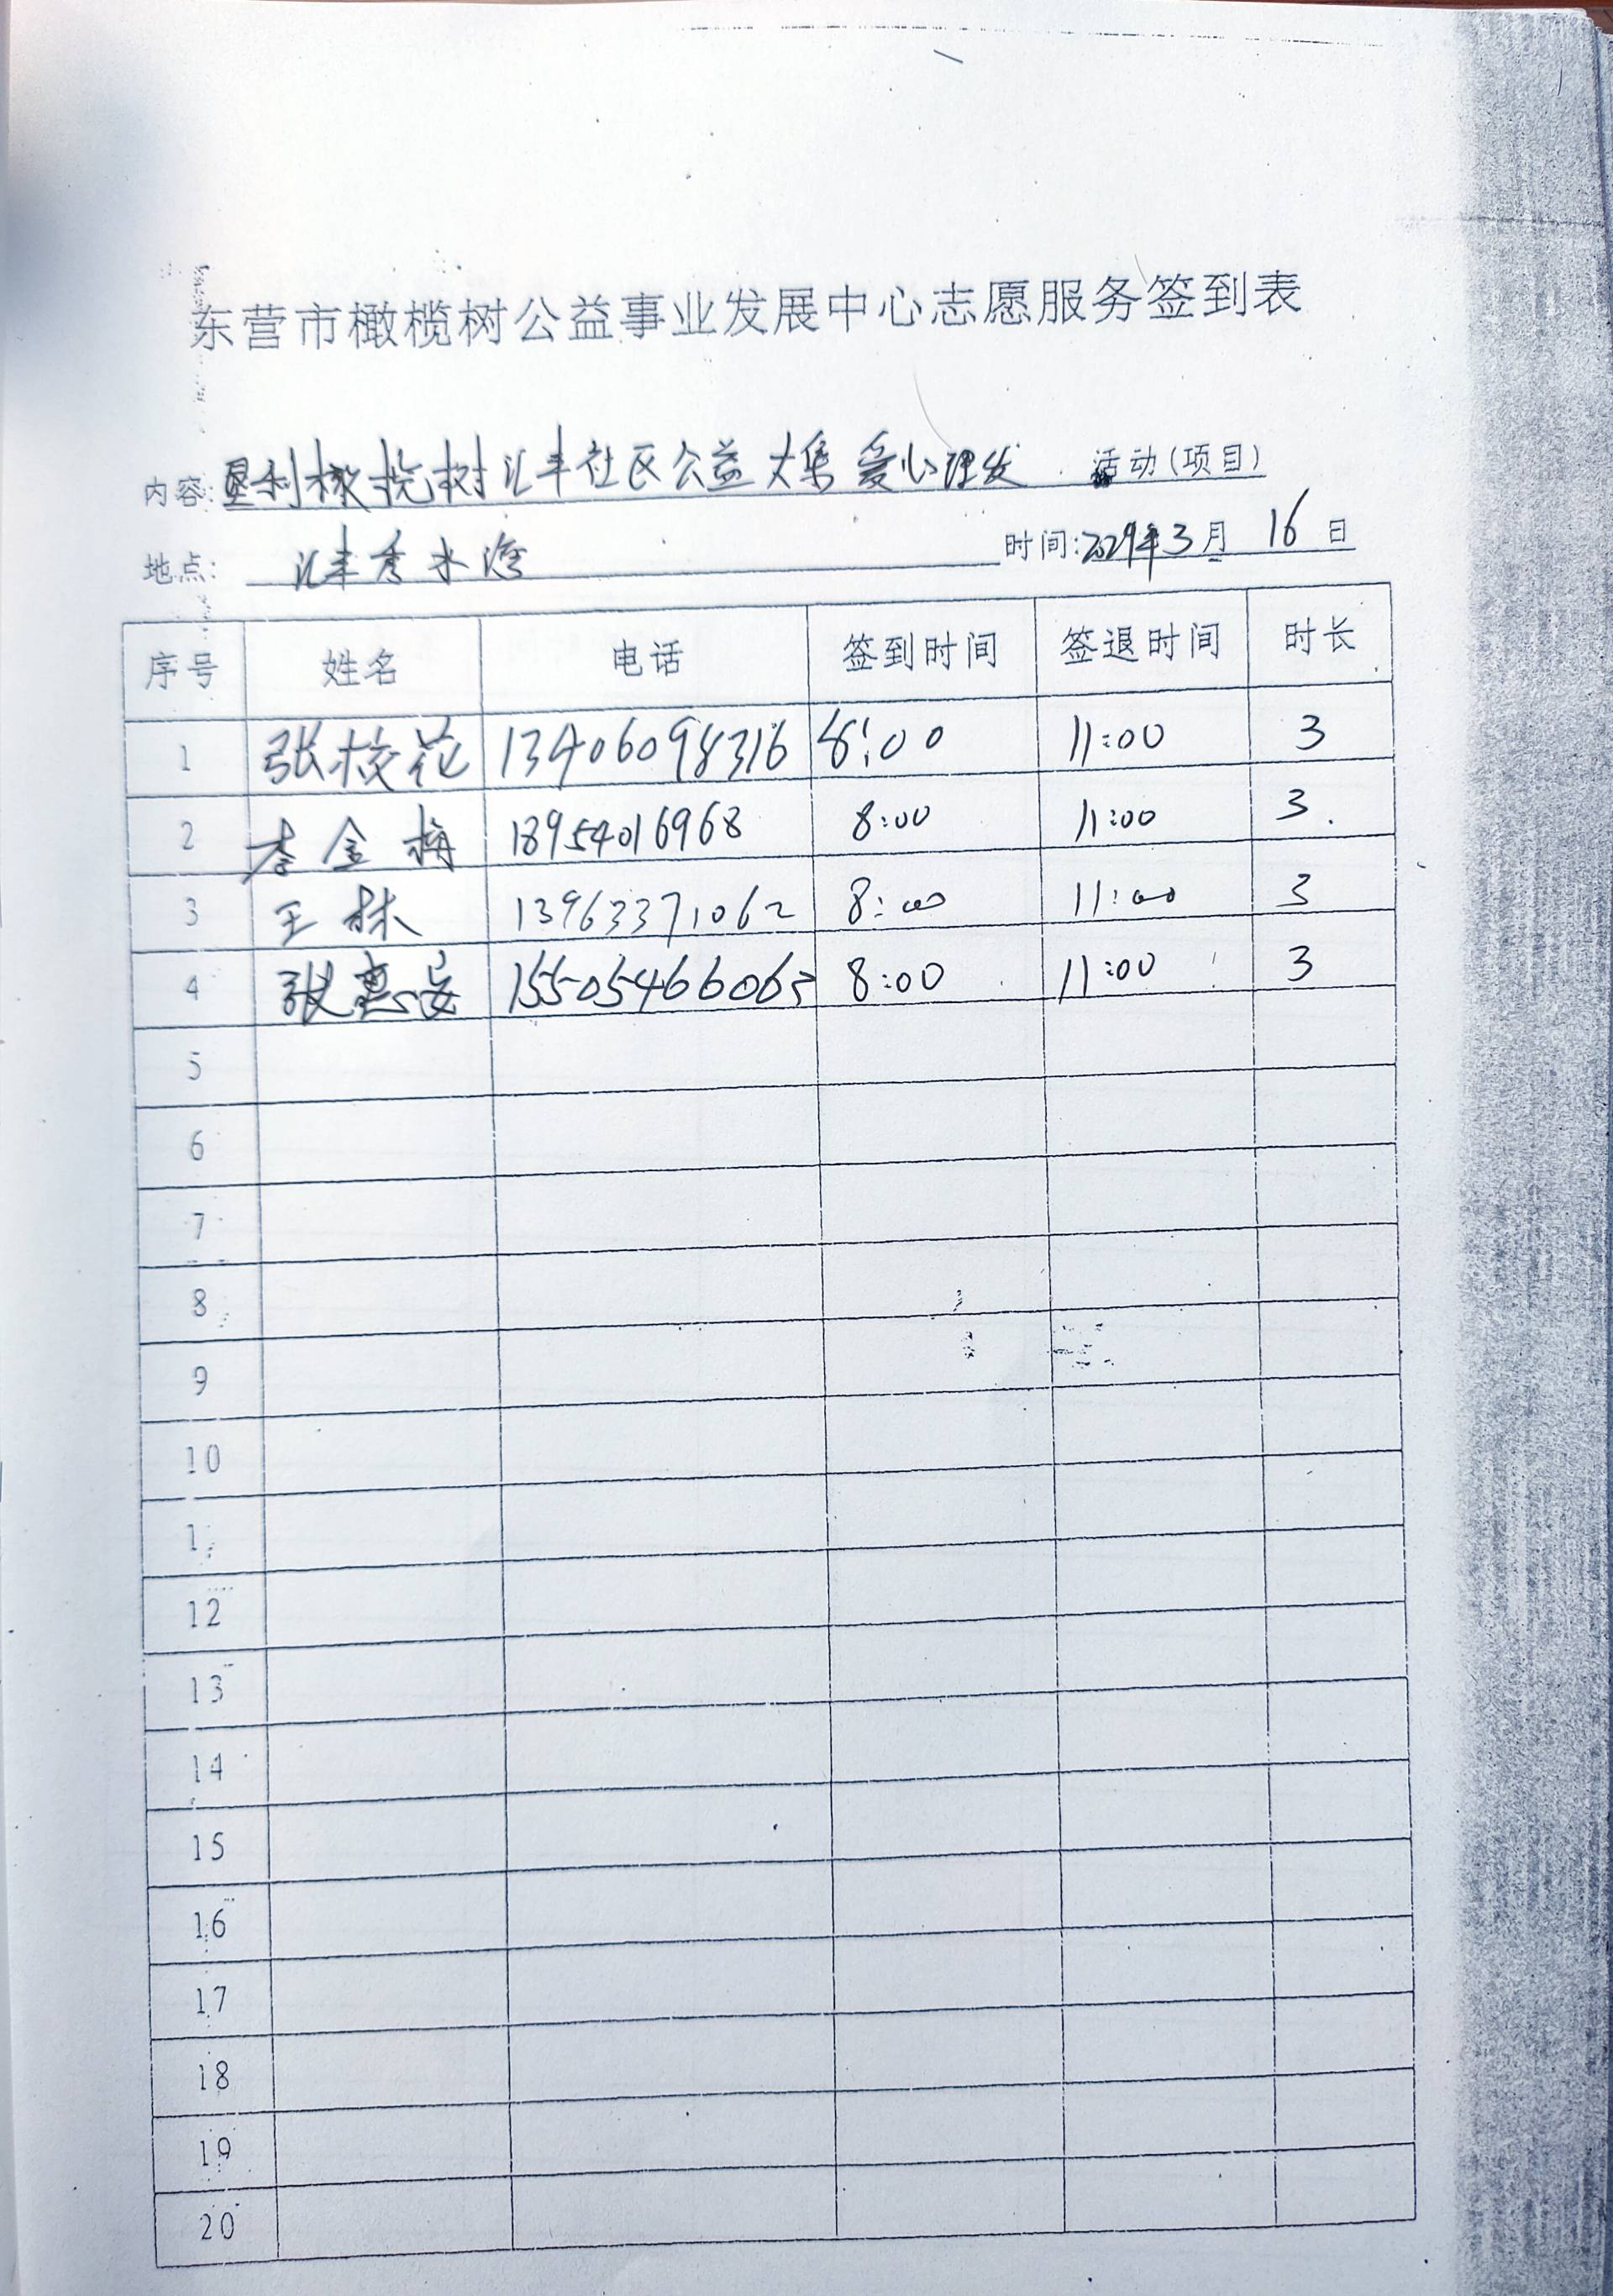 东营市橄榄树公益事业发展中心志愿服务签到表
内容: 垦利橄榄树汇丰社区公益大集爱心理发 活动(项目)
地点: 汇丰秀水湾 时间: 年3月16日
序号 姓名 电话 签到时间 签退时间 时长
1 张校花 13406098316 8:00 11:00 3
2 李金梅 18954016968 8:00 11:00 3.
3 王林 13963371062 8:00 11:00 3
4 张惠安 15505466063 8:00 11:00 3
5
6
7
8
9
10
1
12
13
14
15
16
17
18
19
20